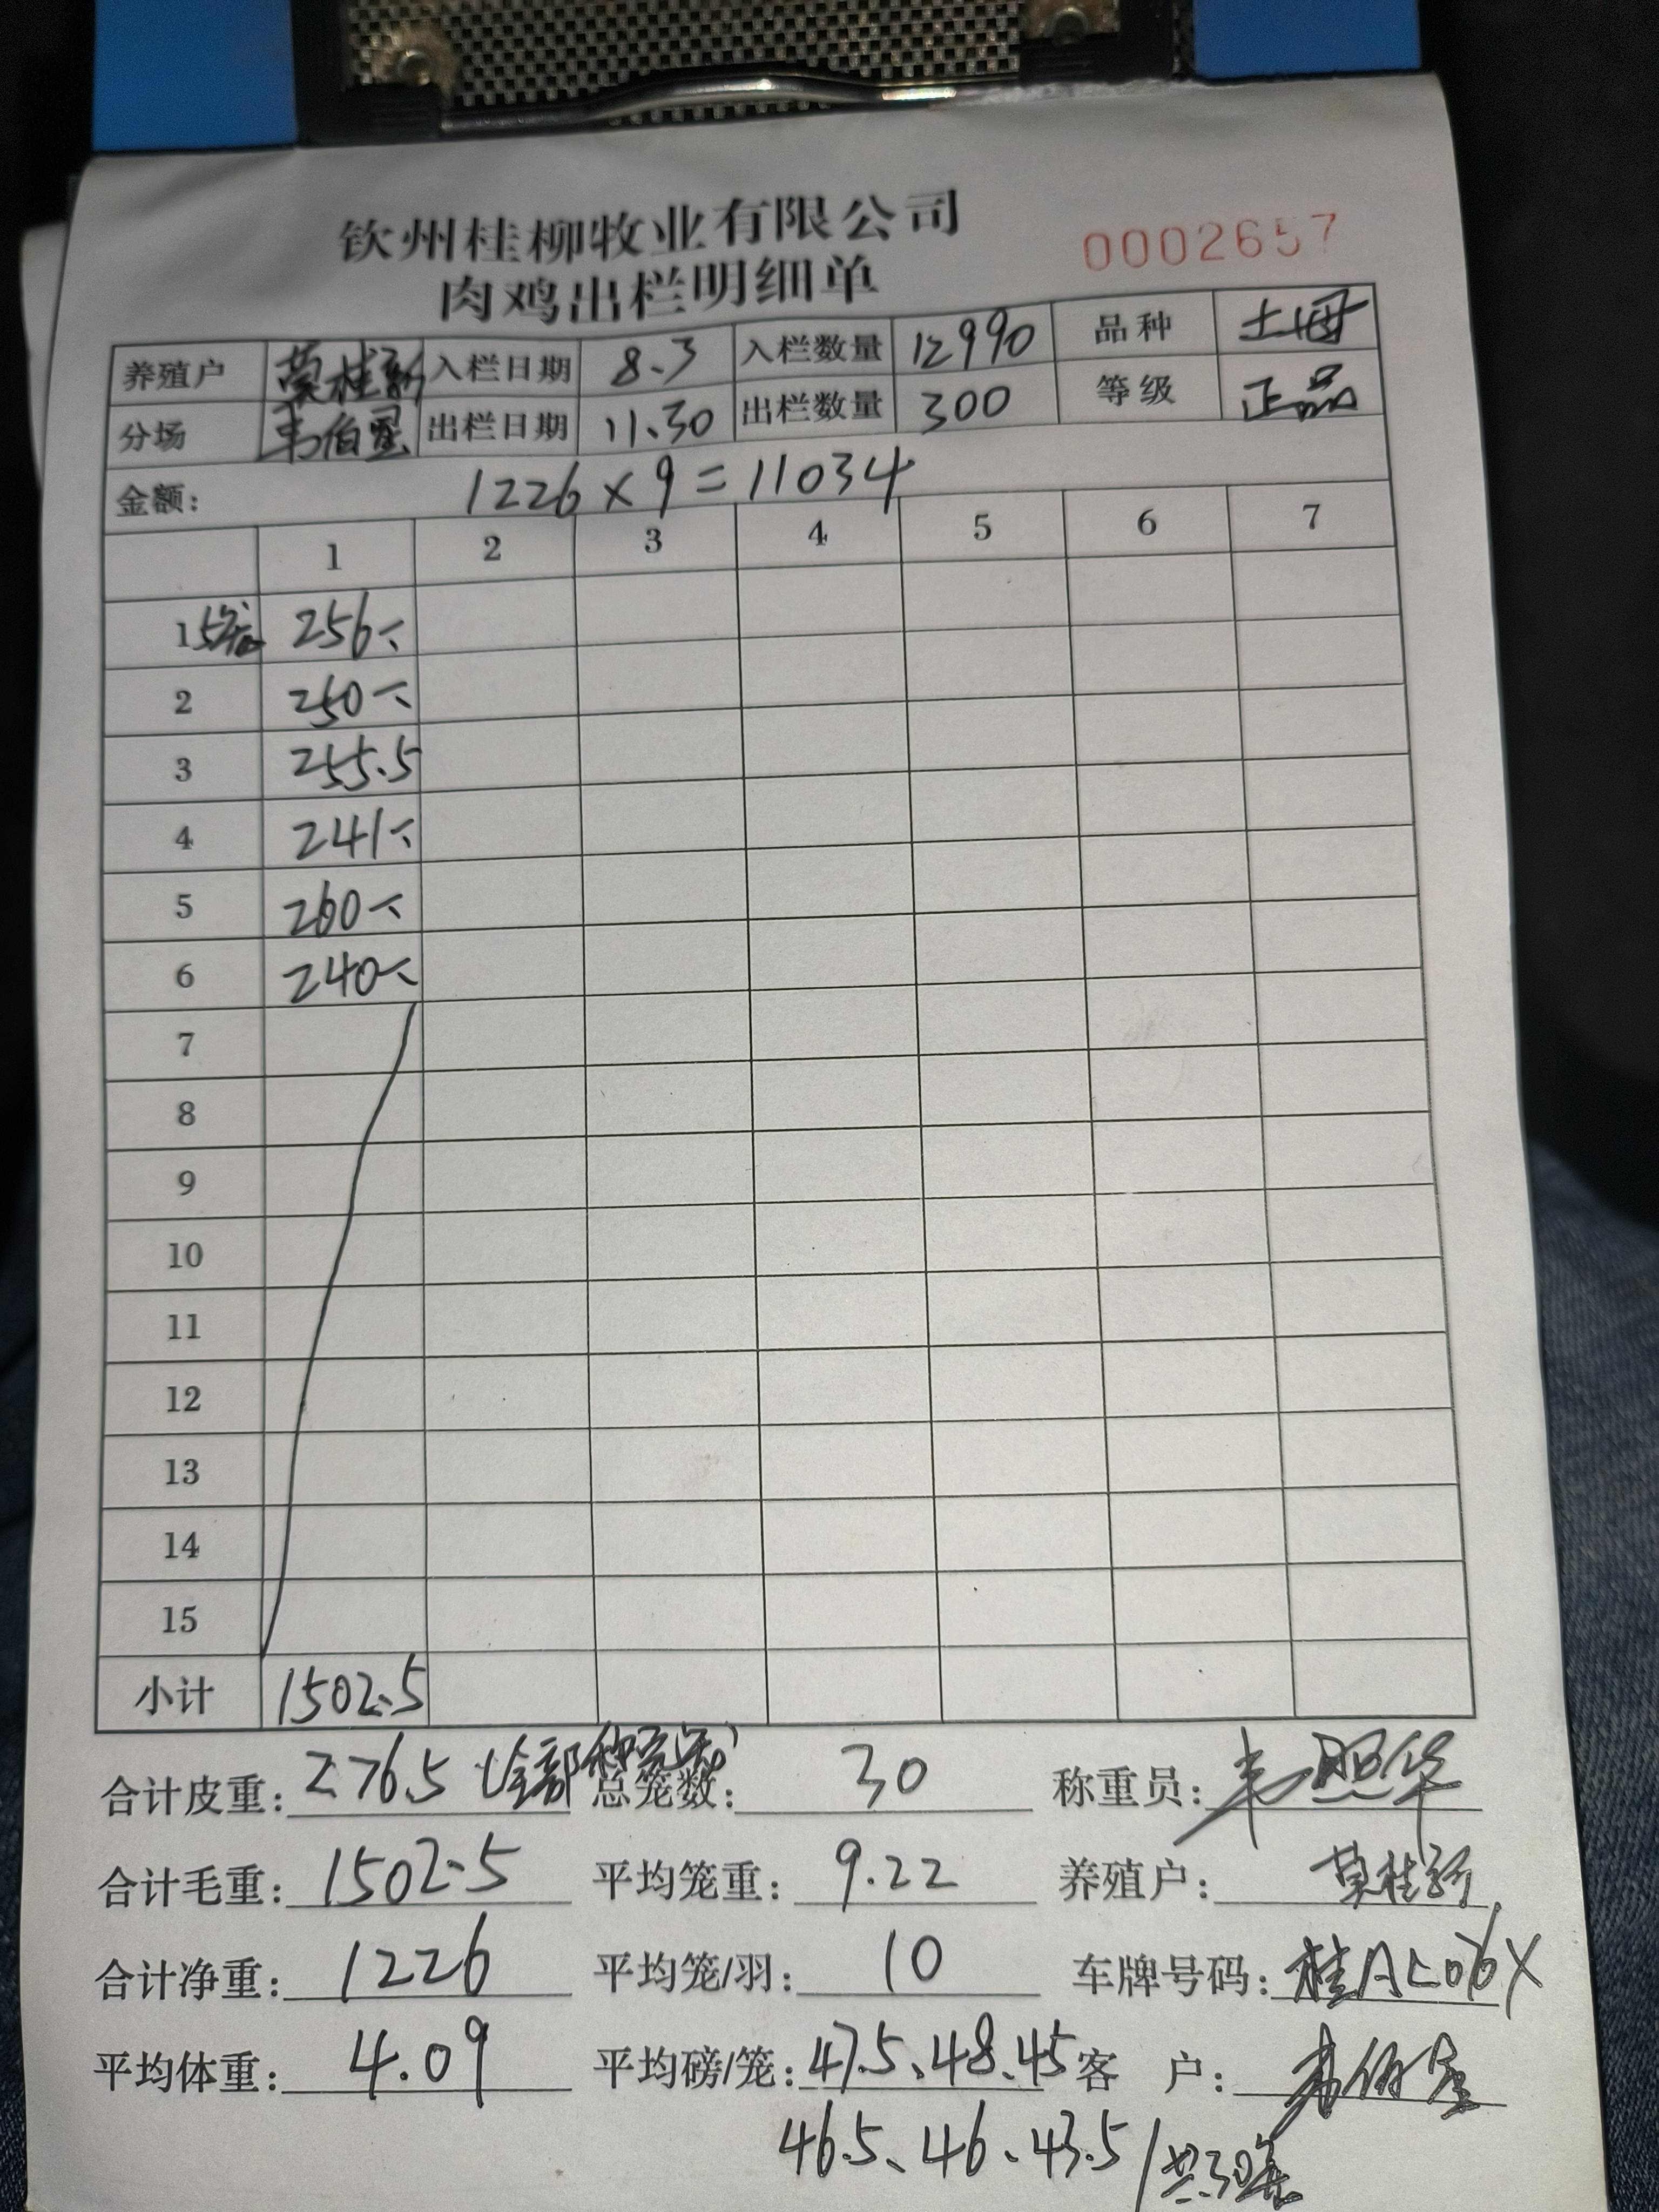 钦州桂柳牧业有限公司
0002657
肉鸡出栏明细单
养殖户 莫桂新 入栏日期 8.3 入栏数量 12990 品种 土母
分场 韦伯星 出栏日期 11.30 出栏数量 300 等级 正品
金额: 1226×9=11034
1 2 3 4 5 6 7
1 5笼 256
2 250
3 255.5
4 241
5 260
6 240
7
8
9
10
11
12
13
14
15
小计 1502.5
合计皮重: 276.5 (全部称完) 总笼数: 30 称重员: 韦照华
合计毛重: 1502.5 平均笼重: 9.22 养殖户: 莫桂新
合计净重: 1226 平均笼/羽: 10 车牌号码: 桂A
平均体重: 4.09 平均磅/笼: 47.5、48、45 客 户: 韦伯星
46.5、46、43.5/共30笼